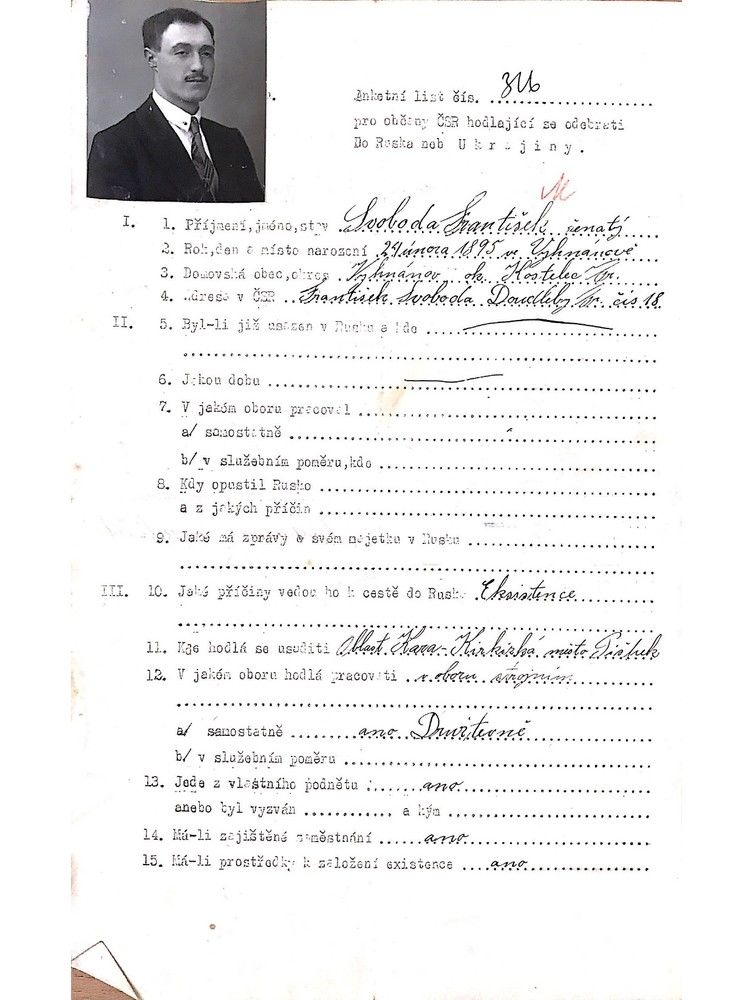 Anketní list čís. 316
pro občany ČSR hodlající se odebrati
Do Ruska neb Ukrajiny.
I. 1. Příjmení, jméno, stav Svoboda František ženatý
2. Rok, den a místo narození 24 února 1895 ve Vyhnánově
3. Domovská obec, okres Vyhnánov ok. Kostelec
4. Adresa v ČSR František Svoboda Doudleby čís 18.
II. 5. Byl-li již usazen v Rusku a kde
6. Jakou dobu
7. V jakém oboru pracoval
a/ samostatně
b/ v služebním poměru, kde
8. Kdy opustil Rusko
a z jakých příčin
9. Jaké má zprávy o svém majetku v Rusku
III. 10. Jaké příčiny vedou ho k cestě do Ruska Eksistence
11. Kde hodlá se usaditi Oblast Kara-Kirkizká místo Pišpek
12. V jakém oboru hodlá pracovati v oboru strojním
a/ samostatně ano Družtevně
b/ v služebním poměru
13. Jede z vlastního podnětu ano
anebo byl vyzván , a kým
14. Má-li zajištěné zaměstnání ano
15. Má-li prostředky k založení existence ano